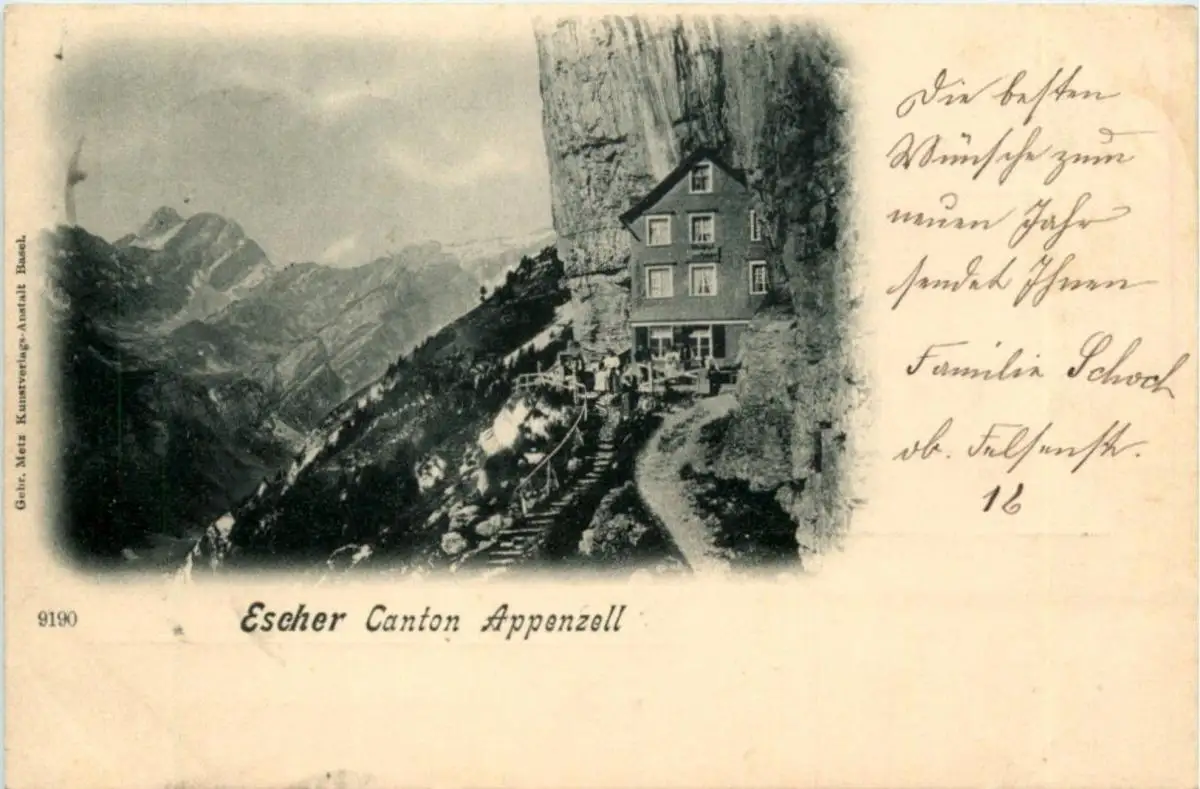 Die besten
Wünsche zum
neuen Jahr
sendet Ihnen
Familie Schoch
ob. Felsenstr.
16
Gebr. Metz Kunstverlags-Anstalt Basel.
9190
Escher Canton Appenzell